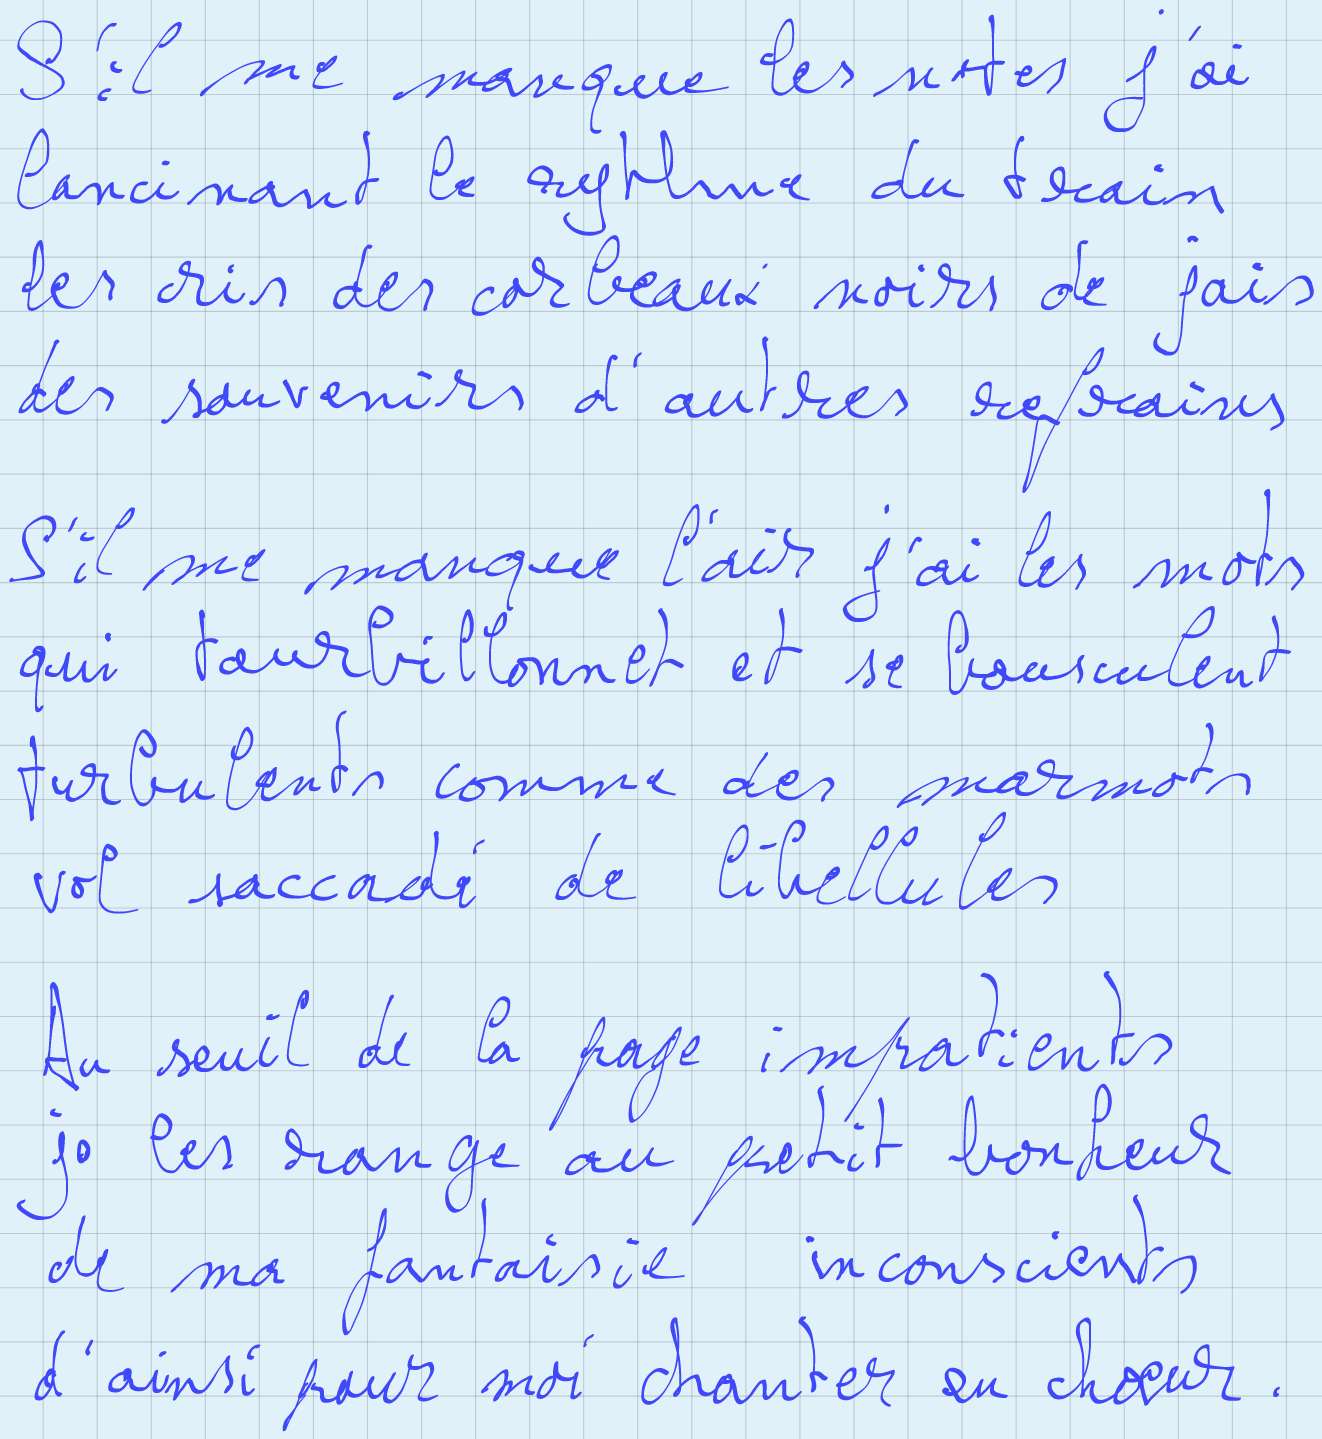 S'il me manque les notes j'ai
lancinant le rythme du train
les cris des corbeaux noirs de jais
des souvenirs d'autres refrains
S'il me manque l'air j'ai les mots
qui tourbillonnet et se bousculent
turbulents comme des marmots
vol saccadé de libellules
Au seuil de la page impatients
je les range au petit bonheur
de ma fantaisie inconscients
d'ainsi pour moi chanter en chœur.